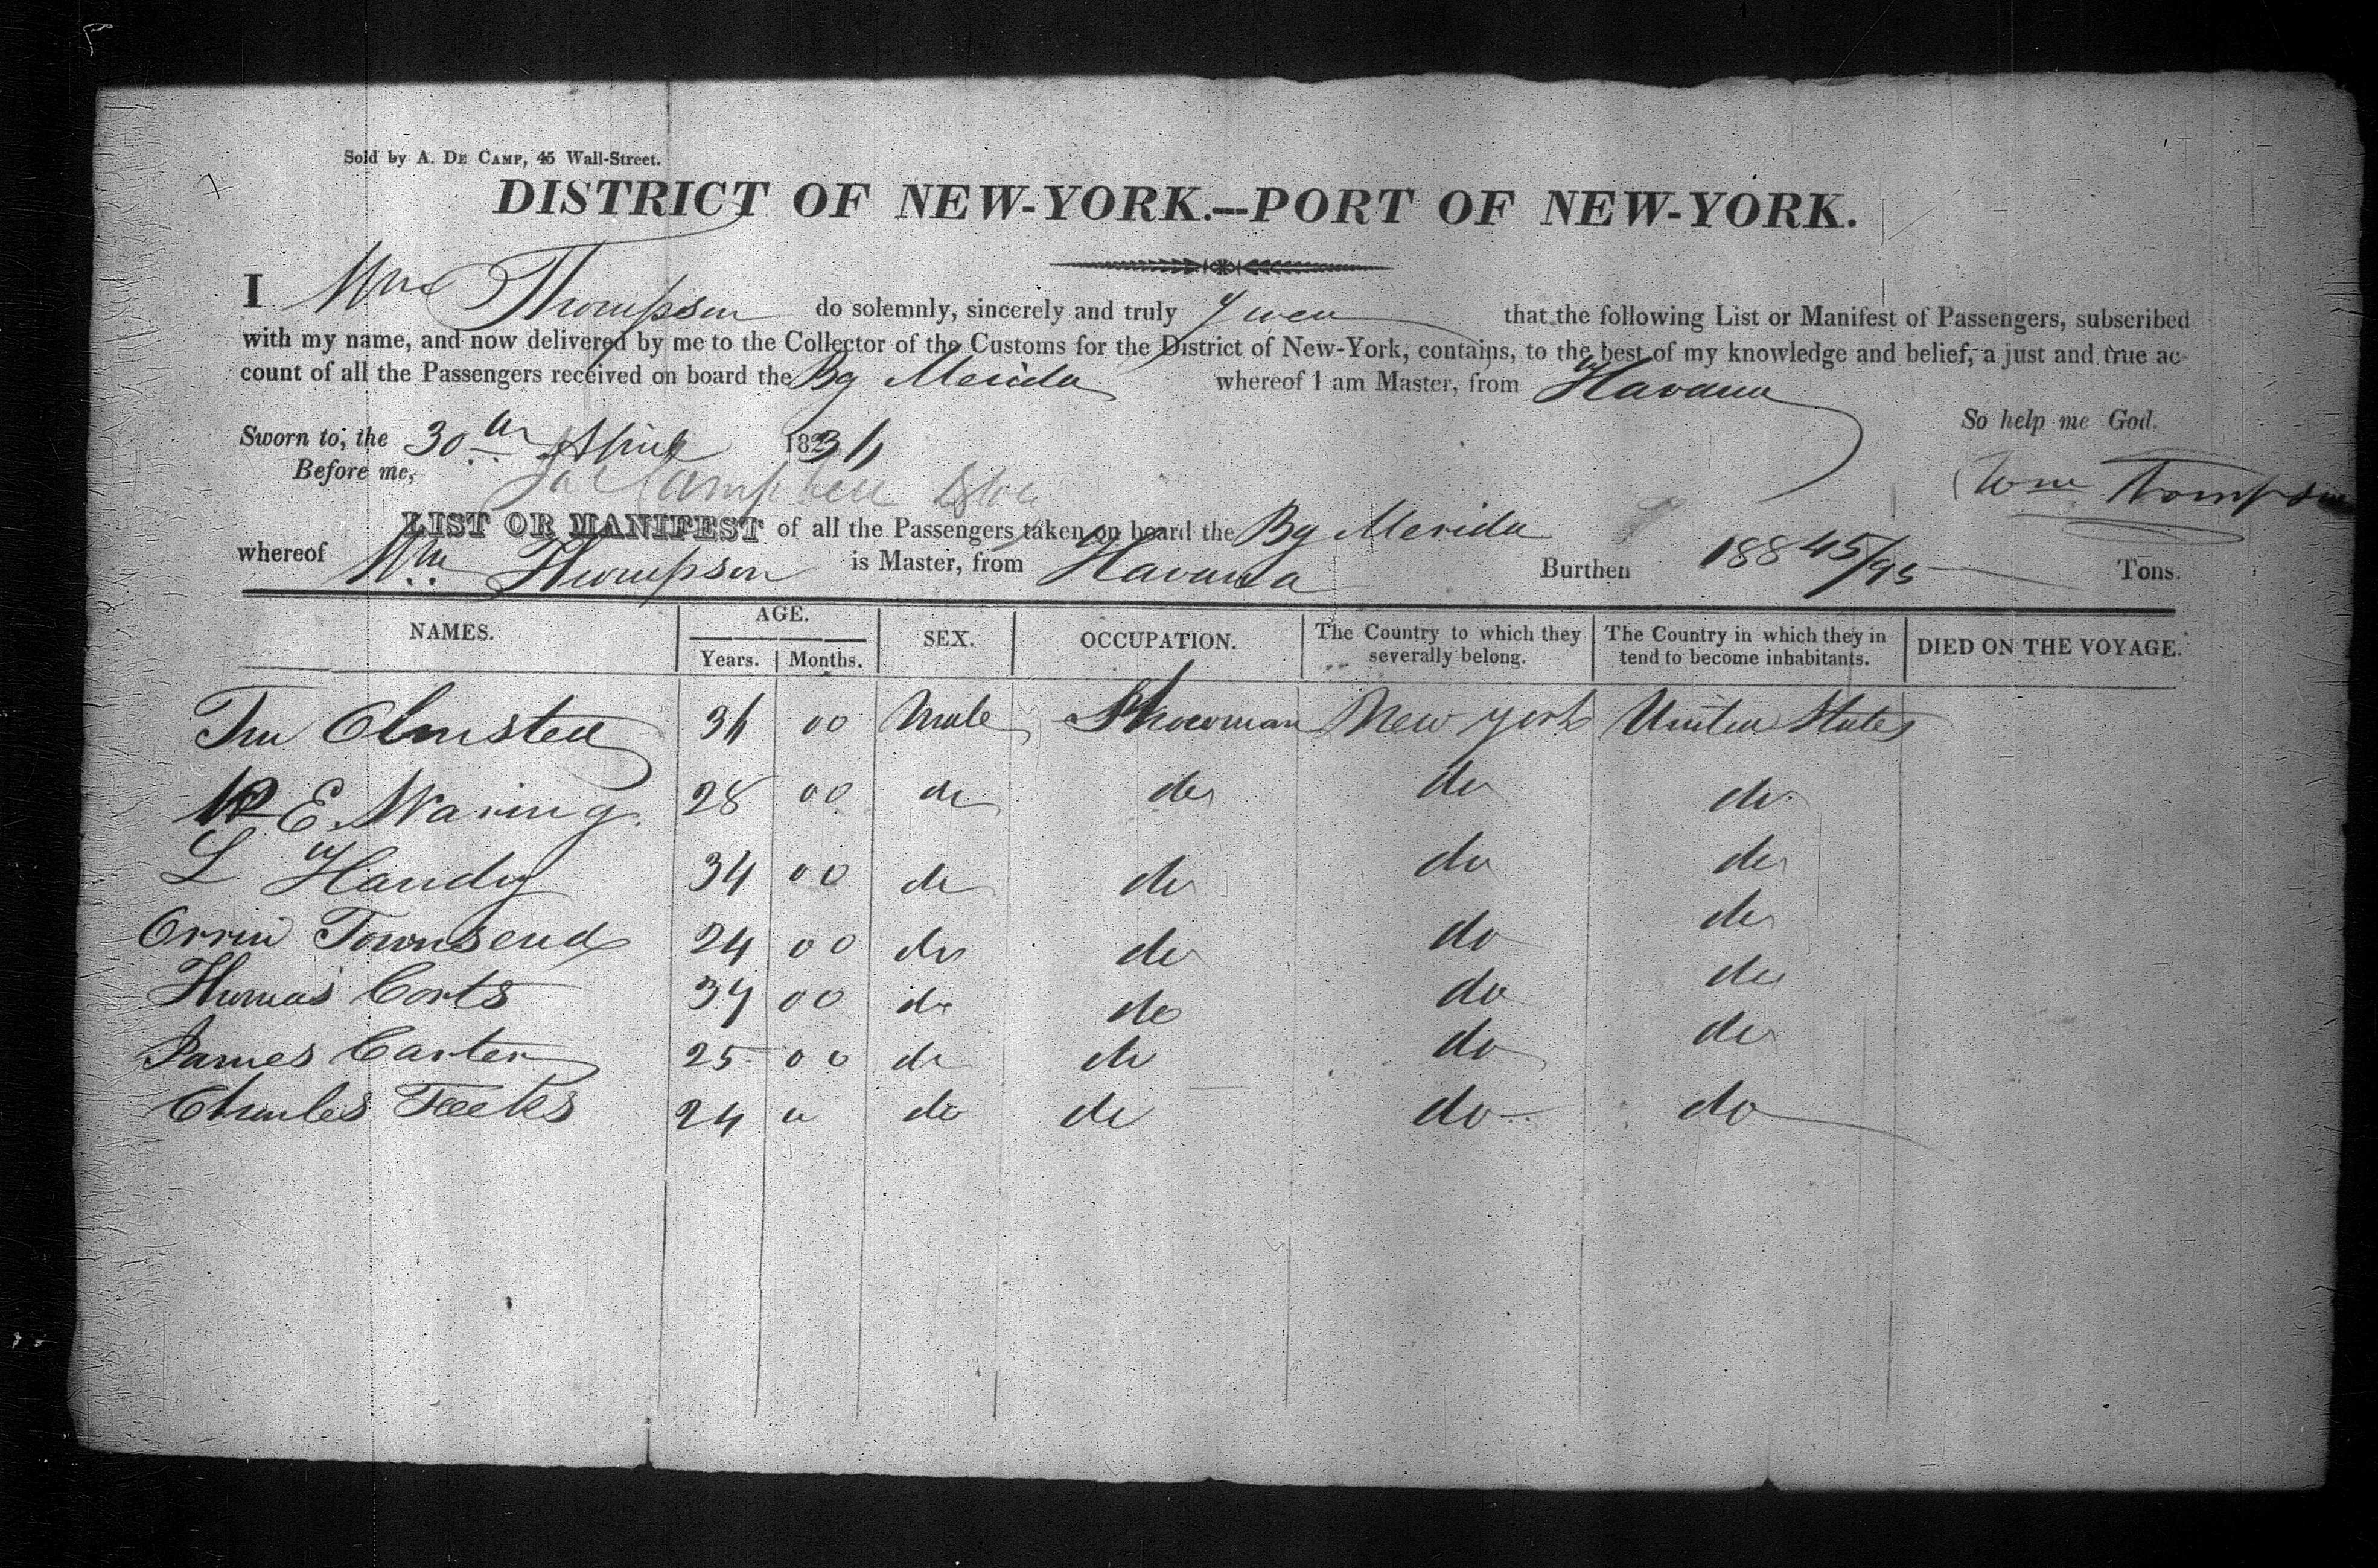 Sold by A. DE CAMP, 45 Wall-Street.
DISTRICT OF NEW-YORK.—PORT OF NEW-YORK.
I Wm Thompson do solemnly, sincerely and truly Swear that the following List or Manifest of Passengers, subscribed
with my name, and now delivered by me to the Collector of the Customs for the District of New-York, contains, to the best of my knowledge and belief, a just and true ac-
count of all the Passengers received on board the Bg Merida whereof I am Master, from Havana
So help me God.
Sworn to, the 30th April 182
Before me, Campbell Wm Thompson
LIST OR MANIFEST of all the Passengers taken on board the Bg Merida
whereof Wm Thompson is Master, from Havana Burthen 188 45/95 Tons.
NAMES. AGE. Years. Months. SEX. OCCUPATION. The Country to which they severally belong. The Country in which they in tend to become inhabitants. DIED ON THE VOYAGE.
Olmsted 00 Male Showman New York United States
E. Waring. 28 00 do do do do
L Handy 34 00 do do do do
Orrin Townsend 24 00 do do do do
Thomas Corts 34 00 do do do do
James Carter 25 00 do do do do
Charles 24 do do do do